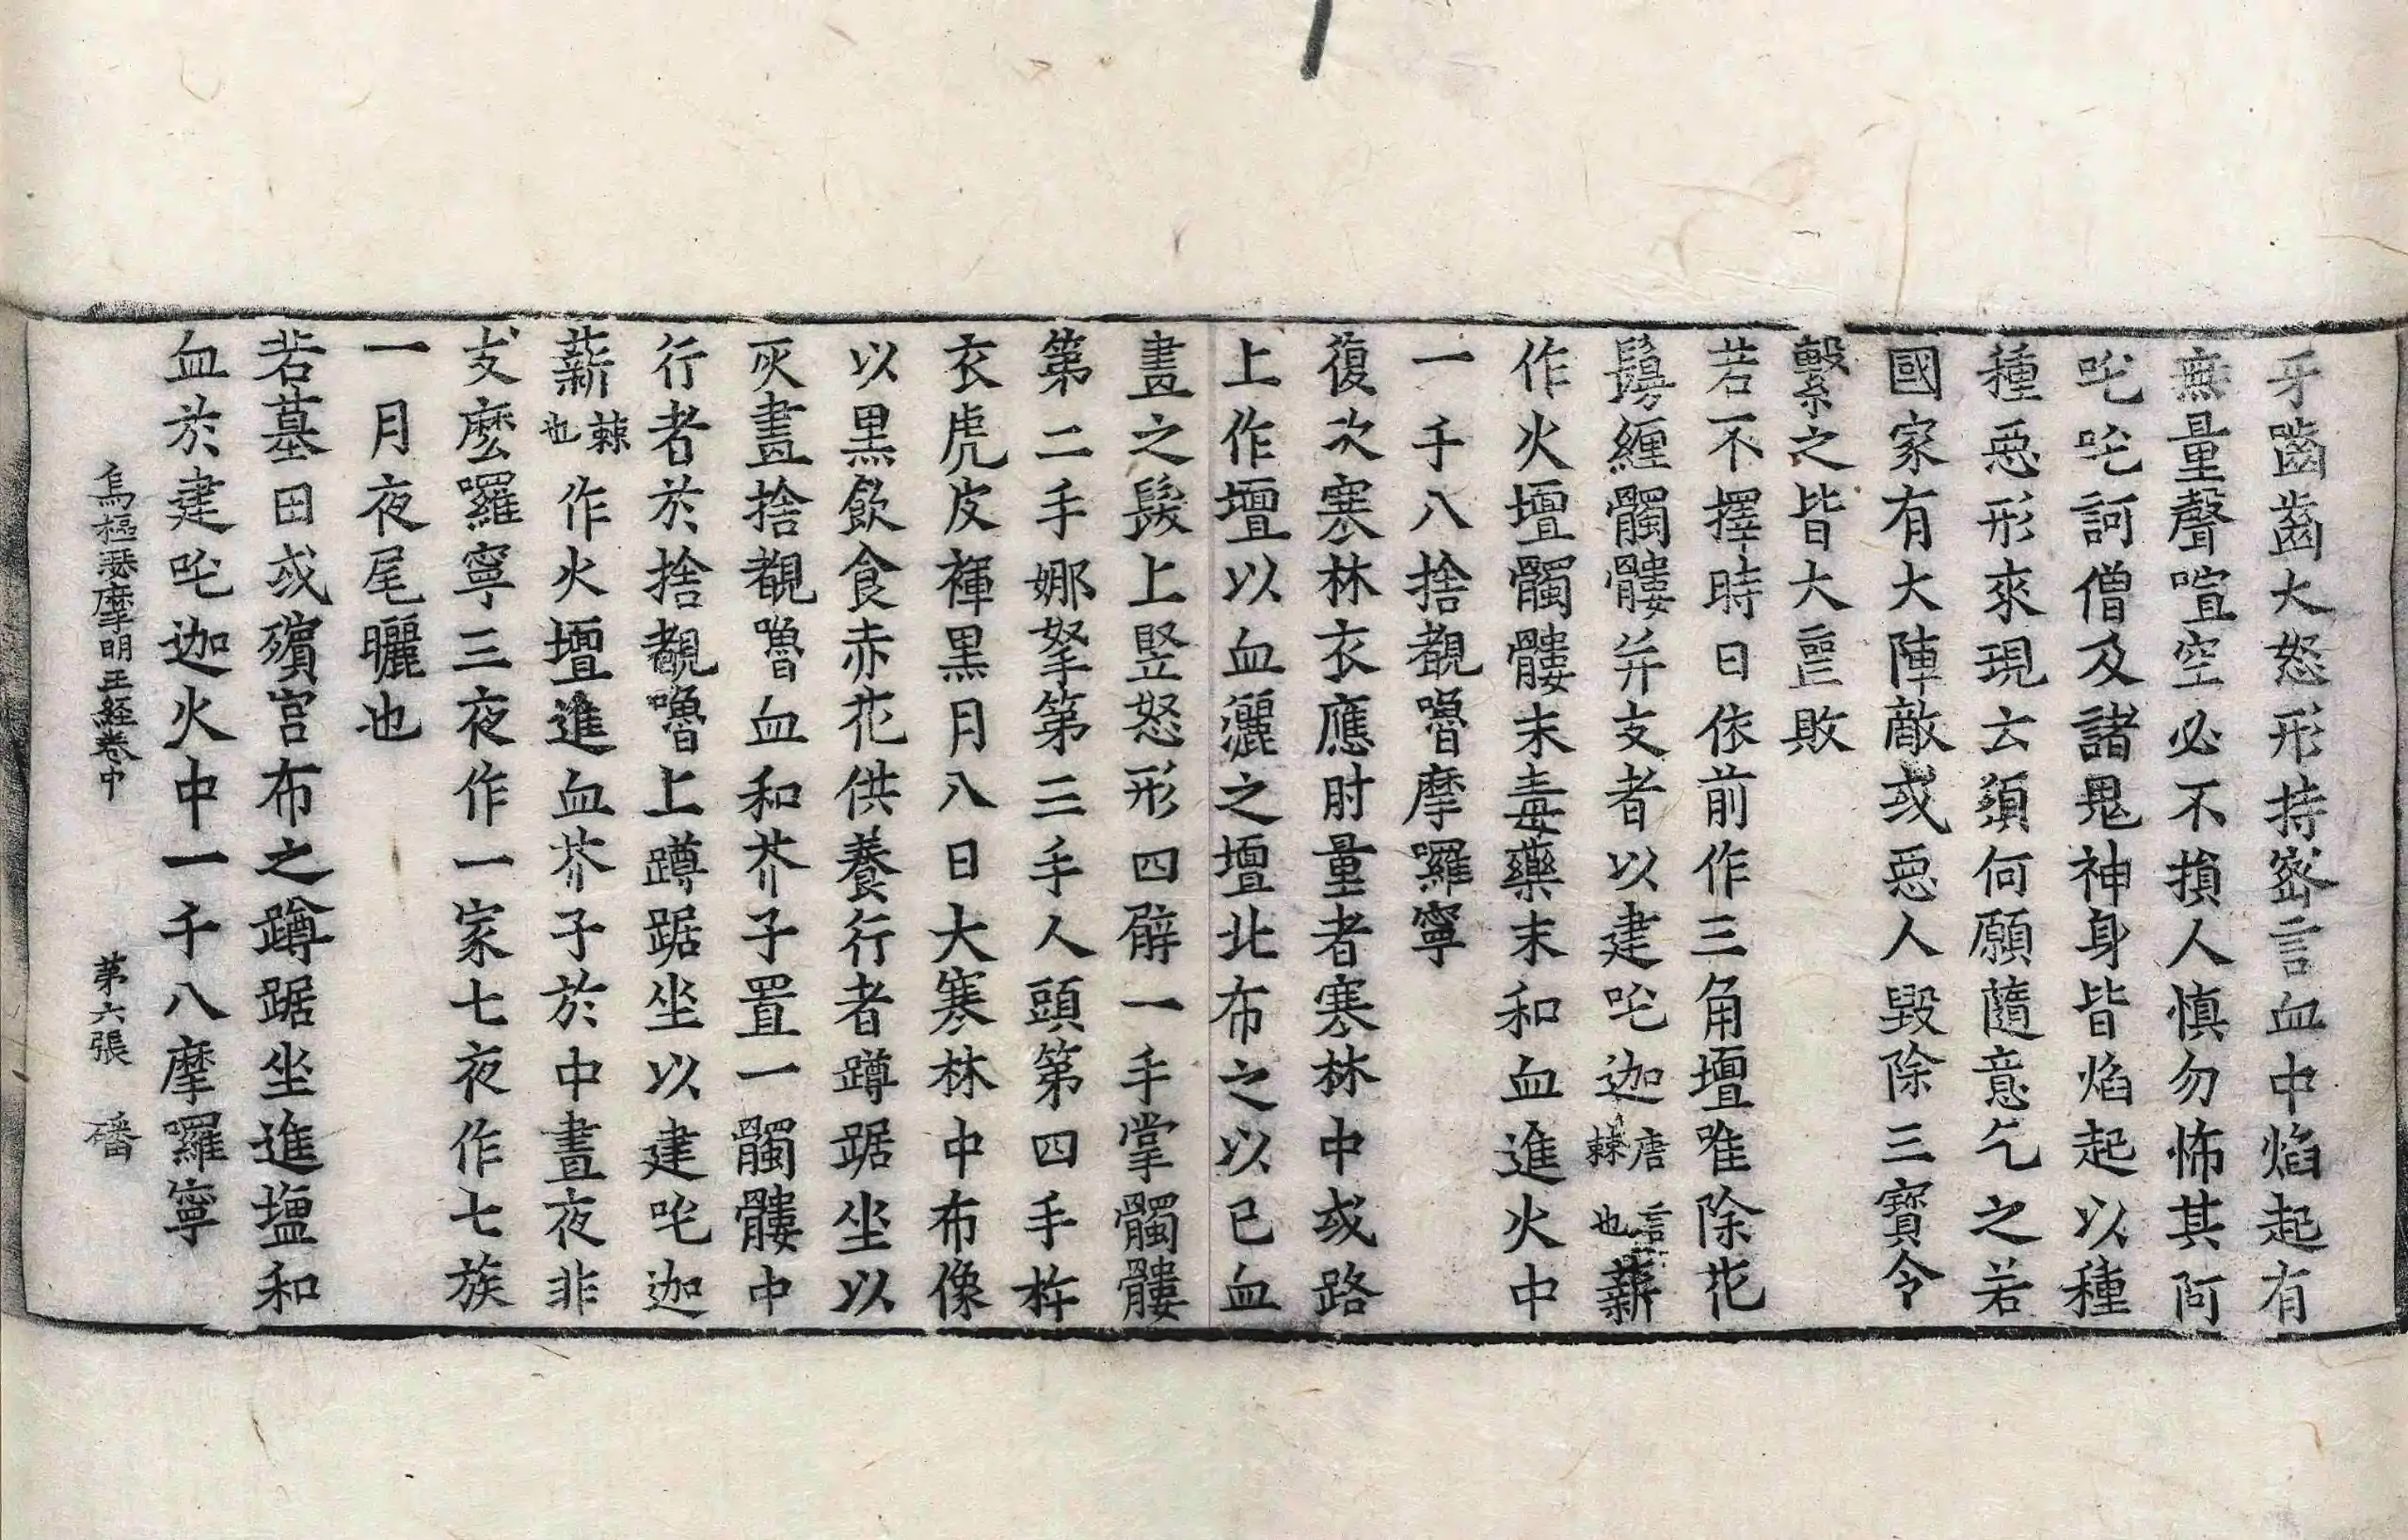 牙嚙齒大怒形持密言血中焰起有
無量聲喧空必不損人慎勿怖其阿
吒吒訶僧及諸鬼神身皆焰起以種
種惡形來現云須何願隨意乞之若
國家有大陣敵或惡人毀除三寳令
繫之皆大𠾱敗
若不擇時日依前作三角壇唯除花
鬘纏髑髏并支者以建吒迦唐言棘也薪
作火壇髑髏末毒藥末和血進火中
一千八捨覩嚕摩囉寧
復次寒林衣應肘量者寒林中或路
上作壇以血灑之壇北布之以已血
畫之髮上竪怒形四臂一手掌髑髏
第二手娜拏第三手人頭第四手杵
衣虎皮褌黒月八日大寒林中布像
以黒飲食赤花供養行者蹲踞坐以
灰畫捨覩嚕血和芥子置一髑髏中
行者於捨覩嚕上蹲踞坐以建吒迦
薪棘也作火壇進血芥子於中晝夜非
支麽囉寧三夜作一家七夜作七族
一月夜尾曬也
若墓田或殯宮布之蹲踞坐進塩和
血於建吒迦火中一千八摩囉寧
烏樞瑟摩明王経卷中 第六張 磻